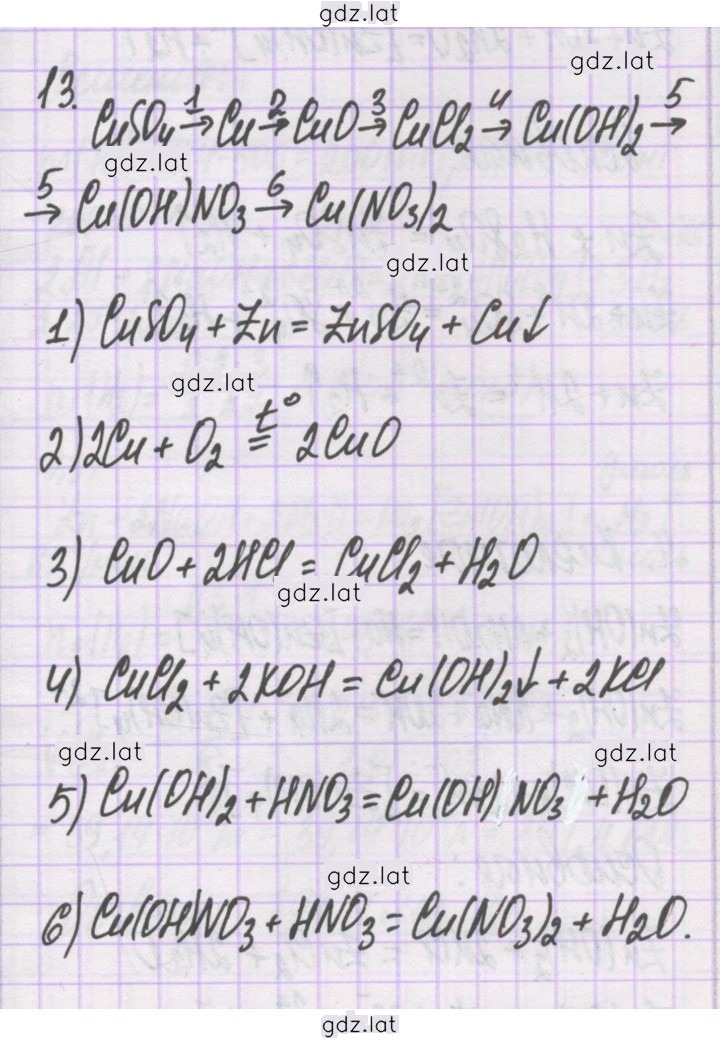 gdz.lat
gdz.lat
13.
CuSO₄ →¹ Cu →² CuO →³ CuCl₂ →⁴ Cu(OH)₂ →⁵
gdz.lat
→⁵ Cu(OH)NO₃ →⁶ Cu(NO₃)₂
gdz.lat
1) CuSO₄ + Zn = ZnSO₄ + Cu↓
gdz.lat
2) 2Cu + O₂ =^t° 2CuO
3) CuO + 2HCl = CuCl₂ + H₂O
gdz.lat
4) CuCl₂ + 2KOH = Cu(OH)₂↓ + 2KCl
gdz.lat gdz.lat
5) Cu(OH)₂ + HNO₃ = Cu(OH) NO₃ + H₂O
gdz.lat
6) Cu(OH)NO₃ + HNO₃ = Cu(NO₃)₂ + H₂O.
gdz.lat